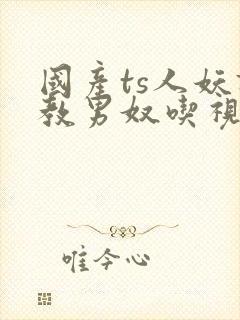 國產ts人妖
教男奴喫視
唯今心